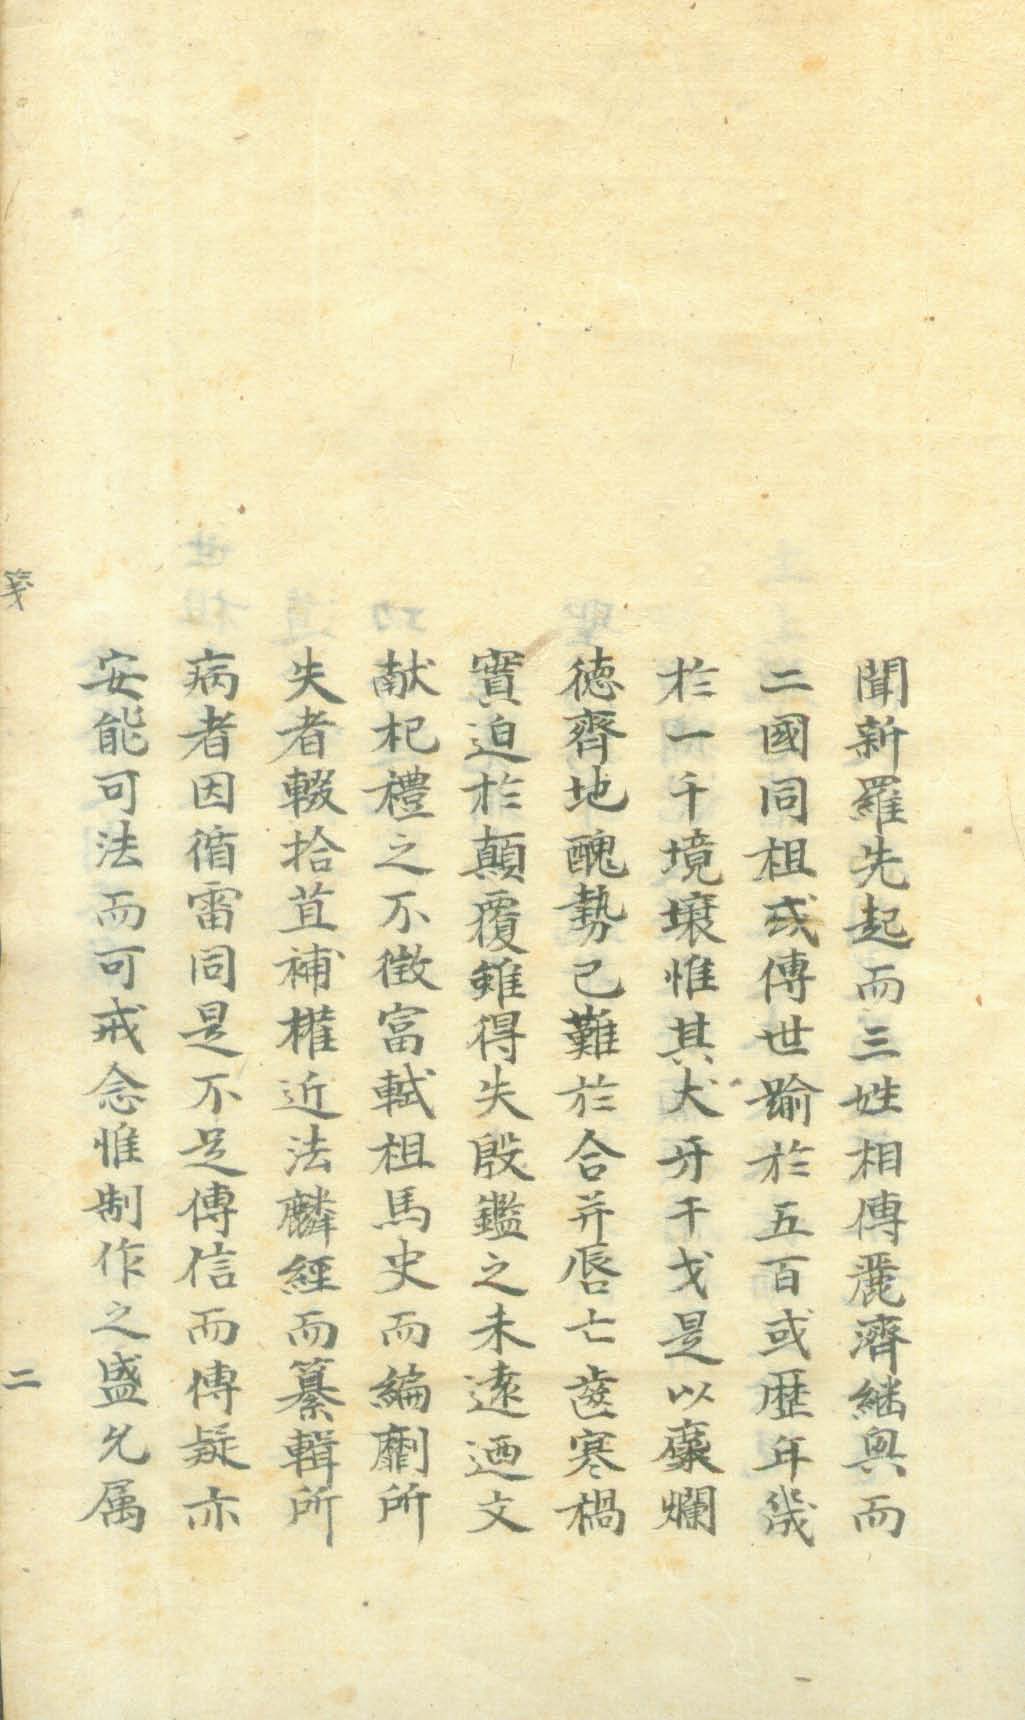 聞新羅先起而三姓相傳麗濟継興而
二國同祖或傳世踰於五百或歴年幾
於一千境壤惟其犬牙干戈是以糜爛
德齊地醜勢已難於合并唇亡齒寒禍
實迫於顛覆雖得失殷鑑之未遠迺文
献杞禮之不徵富軾祖馬史而編劘所
失者輟拾苴補權近法麟經而纂輯所
病者因循雷同是不足傳信而傳疑亦
安能可法而可戒念惟制作之盛允属
箋
二